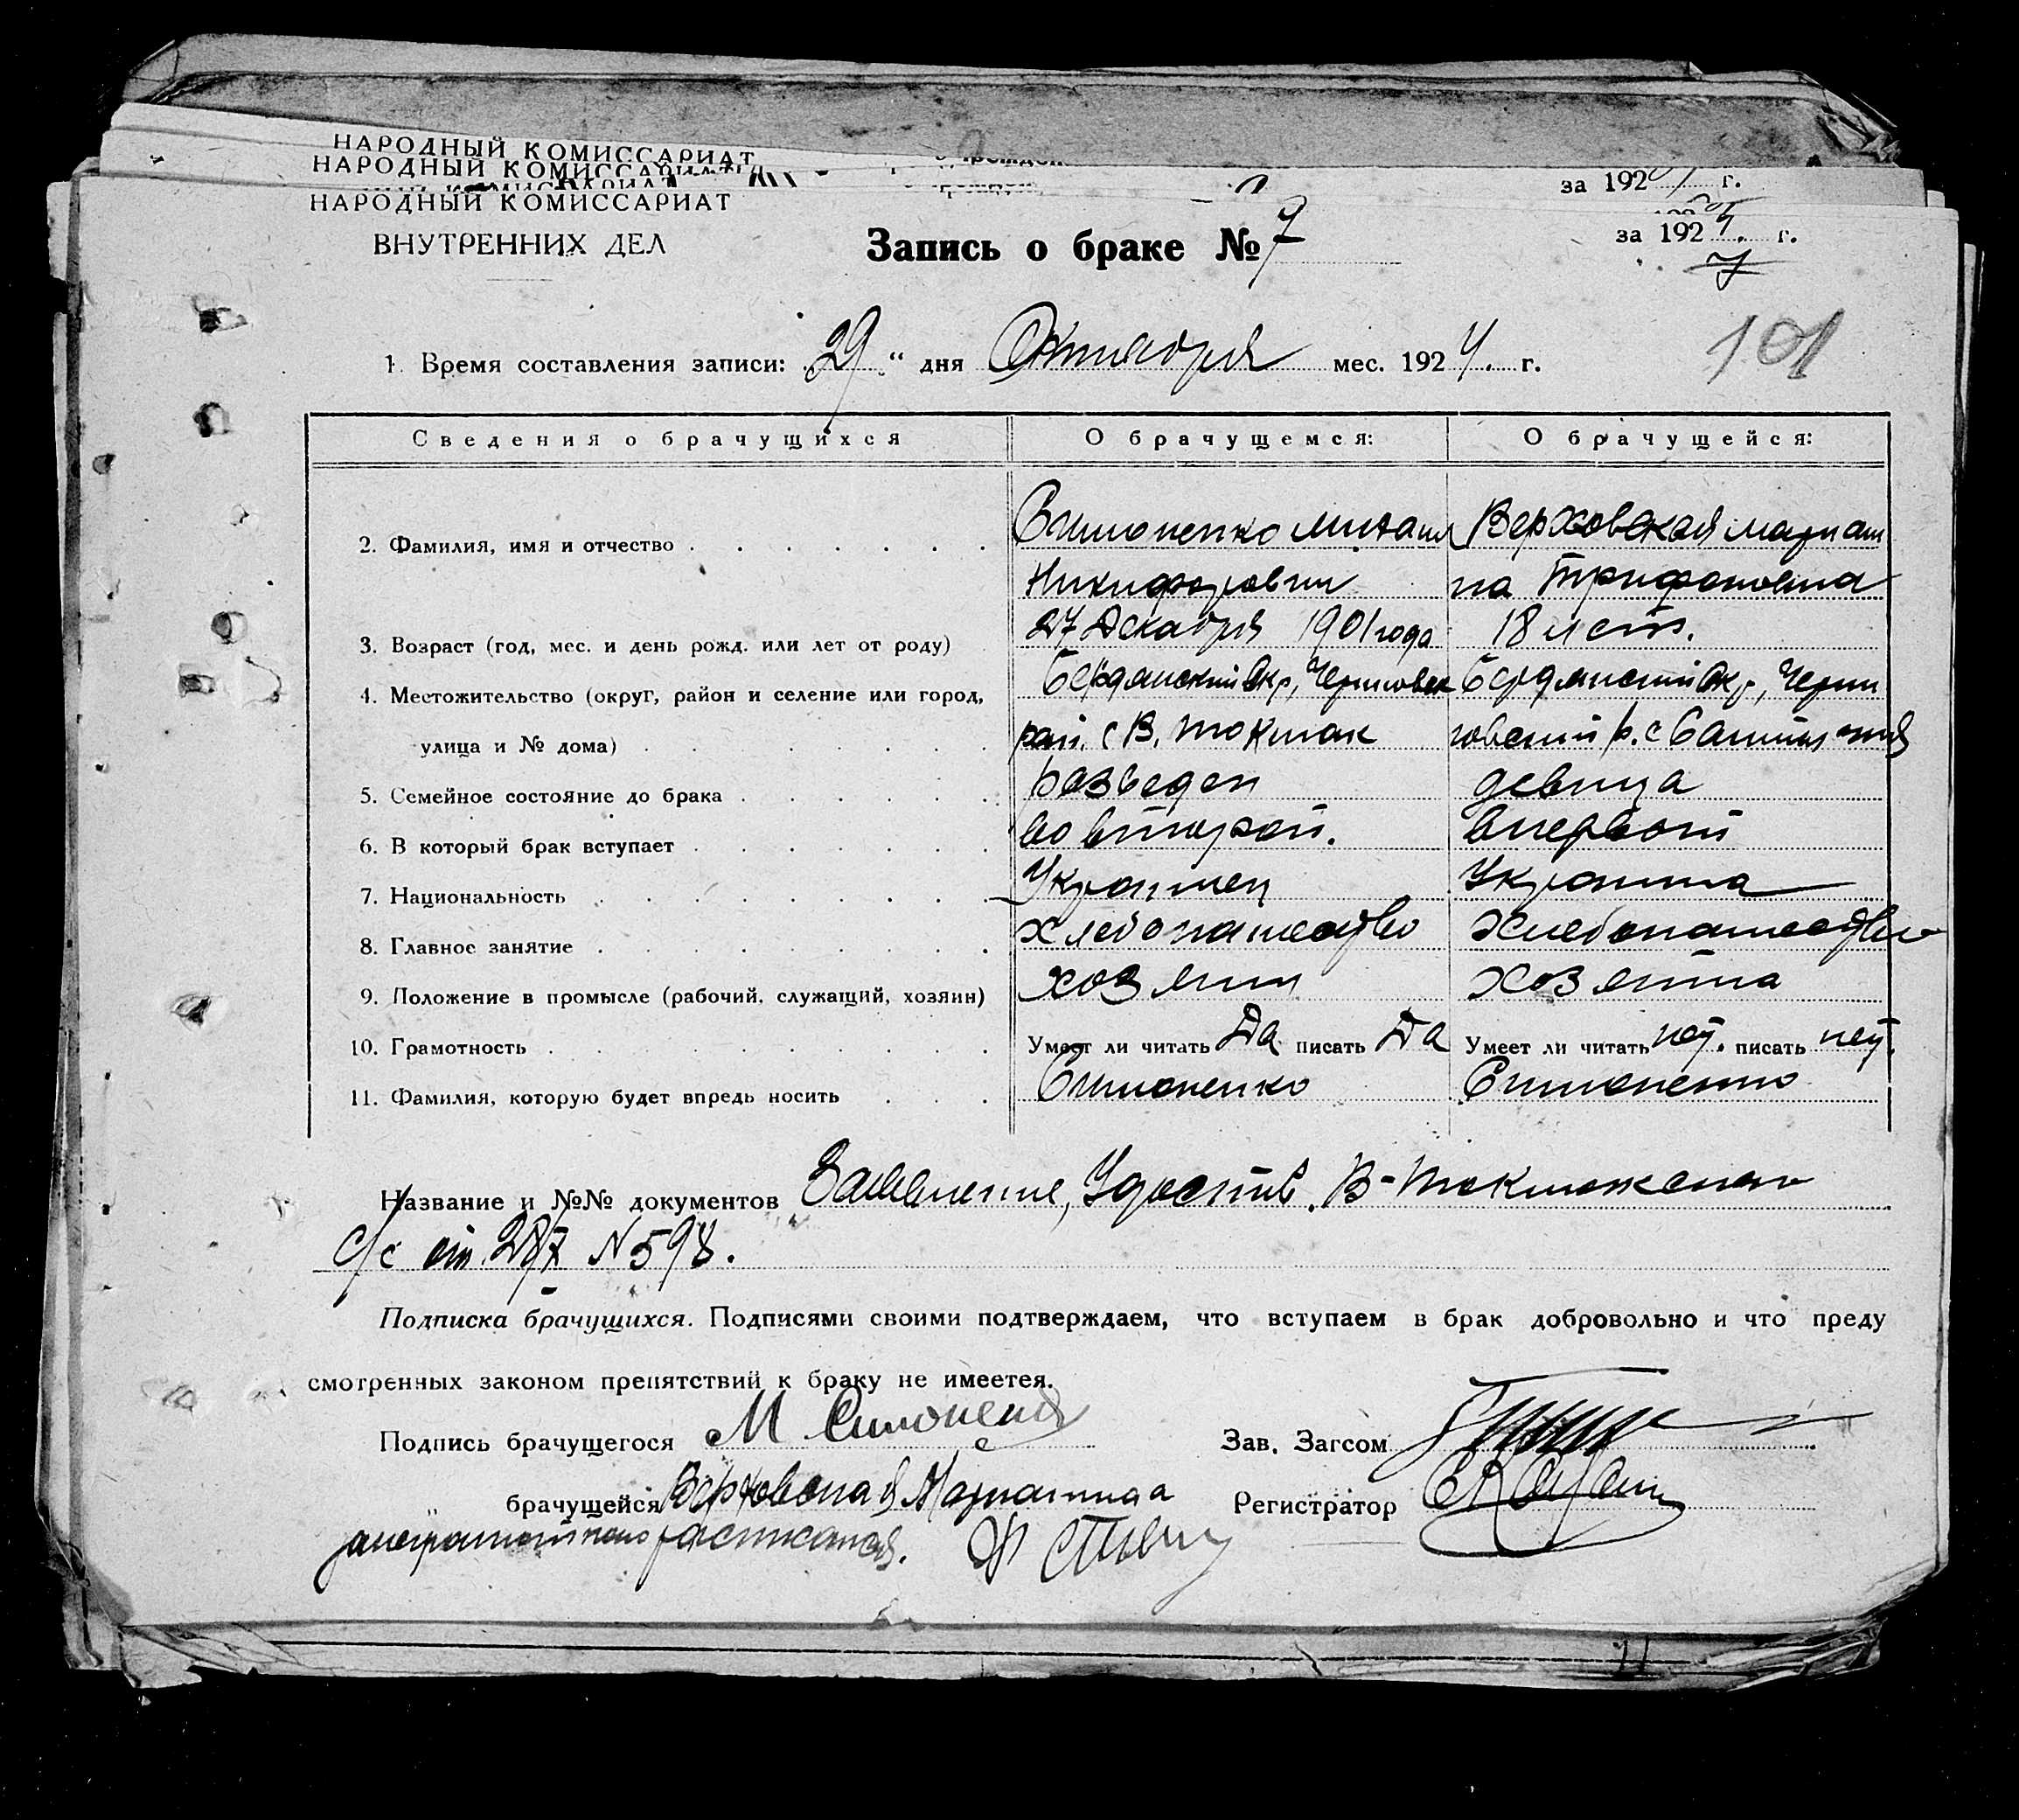 НАРОДНЫЙ КОМИССАРИАТ
НАРОДНЫЙ КОМИССАРИАТ
за 192 г.
НАРОДНЫЙ КОМИССАРИАТ
ВНУТРЕННИХ ДЕЛ
Запись о браке № 7
за 1924. г.
7
101
1. Время составления записи: 29 " дня Октября мес. 1924. г.
Сведения о брачущихся О брачущемся: О брачущейся:
2. Фамилия, имя и отчество Симоненко Михаил Верховская Мариан
Никифорович на Трифоновна
3. Возраст (год, мес. и день рожд. или лет от роду) 27 Декабря 1901 года 18 лет.
4. Местожительство (округ, район и селение или город, Бердянский Окр, Черниговск Бердянский Окр, Черни
улица и № дома) рай. с В. Токмак говский р. с
5. Семейное состояние до брака Разведен девица
6. В который брак вступает во второй. в первой
7. Национальность Украинец Украинка
8. Главное занятие хлебопашество хлебопашество
9. Положение в промысле (рабочий, служащий, хозяин) хозяин хозяйка
10. Грамотность Умеет ли читать Да писать Да Умеет ли читать нет. писать нет.
11. Фамилия, которую будет впредь носить Симоненко Симоненко
Название и №№ документов Заявление, Удостов. В-Токмакского
с/с от 28/X N 598.
Подписка брачущихся. Подписями своими подтверждаем, что вступаем в брак добровольно и что преду
смотренных законом препятствий к браку не имеется.
Подпись брачущегося М Симоненко Зав. Загсом
" брачущейся Верховская Марианна Регистратор